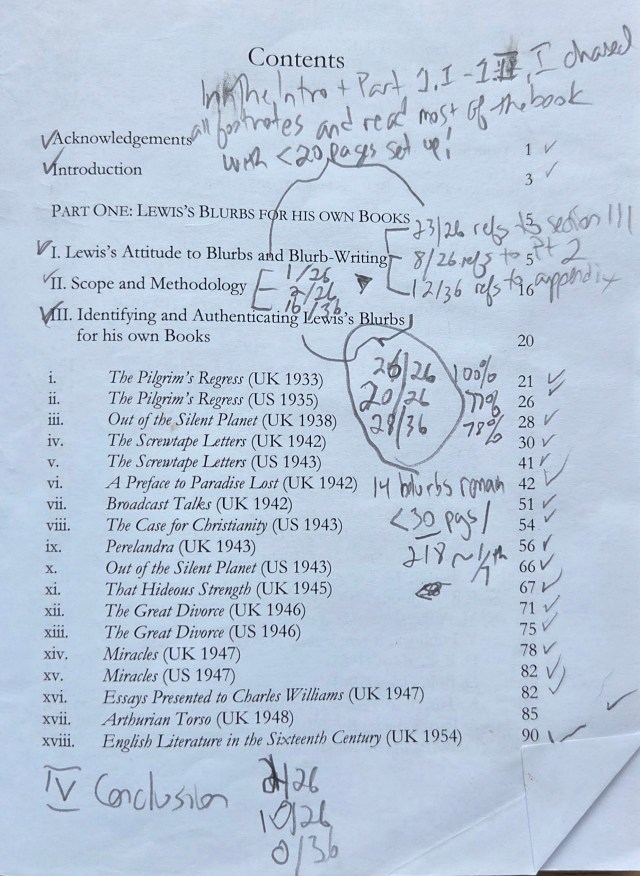 Contents
In the Intro + Part 1.I - 1.III, I chased
all footnotes and read most of the book
with <20 pages set up!
Acknowledgements 1
Introduction 3
PART ONE: LEWIS'S BLURBS FOR HIS OWN BOOKS 5
23/26 refs to section III
I. Lewis's Attitude to Blurbs and Blurb-Writing 5
8/26 refs to Pt 2
1/26
II. Scope and Methodology 16
2/26
12/36 refs to appendix
16/36
III. Identifying and Authenticating Lewis's Blurbs
for his own Books 20
i. The Pilgrim's Regress (UK 1933) 21
26/26 100%
ii. The Pilgrim's Regress (US 1935) 26
20/26 77%
iii. Out of the Silent Planet (UK 1938) 28
28/36 78%
iv. The Screwtape Letters (UK 1942) 30
v. The Screwtape Letters (US 1943) 41
vi. A Preface to Paradise Lost (UK 1942) 42
14 blurbs remain
vii. Broadcast Talks (UK 1942) 51
<30 pags/
viii. The Case for Christianity (US 1943) 54
218 ~ 1/7th
ix. Perelandra (UK 1943) 56
x. Out of the Silent Planet (US 1943) 66
xi. That Hideous Strength (UK 1945) 67
xii. The Great Divorce (UK 1946) 71
xiii. The Great Divorce (US 1946) 75
xiv. Miracles (UK 1947) 78
xv. Miracles (US 1947) 82
xvi. Essays Presented to Charles Williams (UK 1947) 82
xvii. Arthurian Torso (UK 1948) 85
xviii. English Literature in the Sixteenth Century (UK 1954) 90
IV Conclusion
/26
10/26
0/36